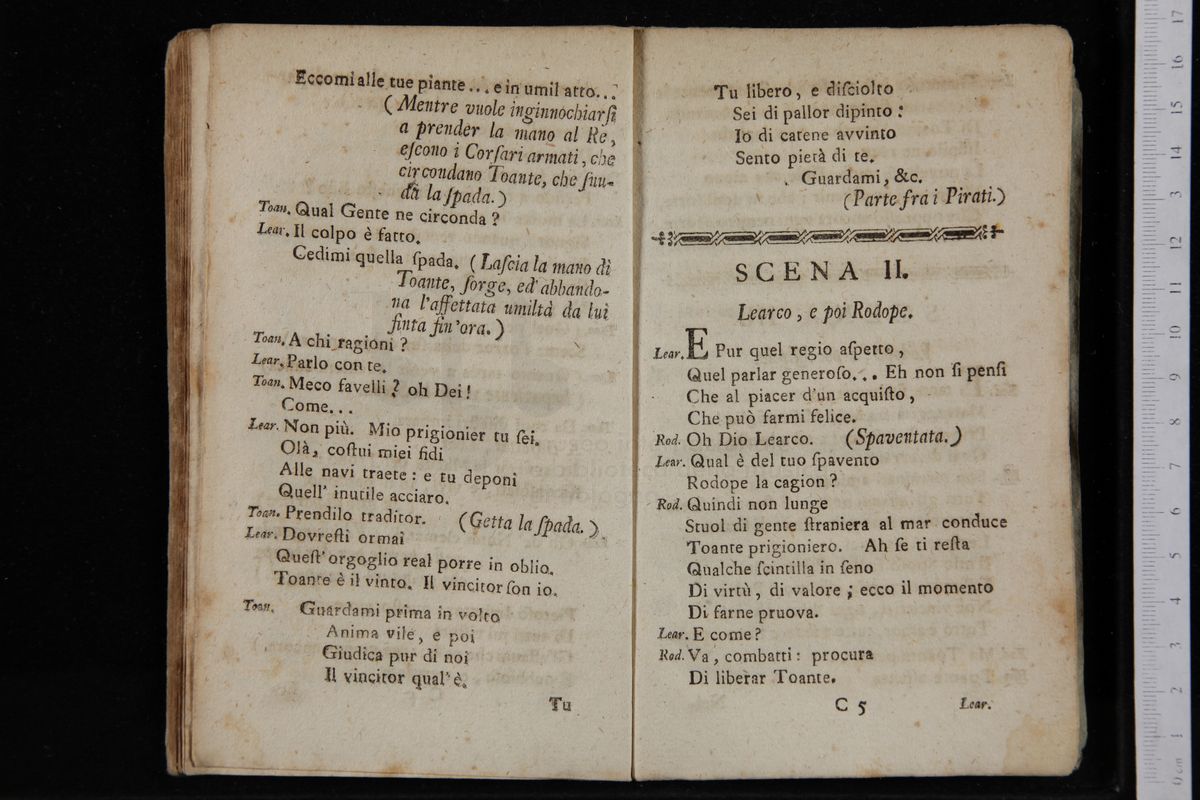 Eccomi alle tue piante... e in umil atto...
(Mentre vuole inginnochiarſi
a prender la mano al Re,
eſcono i Corſari armati, che
circondano Toante, che ſnu-
da la ſpada.)
Toan. Qual Gente ne circonda?
Lear. Il colpo è fatto.
Cedimi quella ſpada. (Laſcia la mano di
Toante, ſorge, ed abbando-
na l'affettata umiltà da lui
finta fin'ora.)
Toan. A chi ragioni?
Lear. Parlo con te.
Toan. Meco favelli? oh Dei!
Come...
Lear. Non più. Mio prigionier tu ſei.
Olà, coſtui miei fidi
Alle navi traete: e tu deponi
Quell' inutile acciaro.
Toan. Prendilo traditor. (Getta la ſpada.)
Lear. Dovreſti ormai
Queſt' orgoglio real porre in oblio.
Toante è il vinto. Il vincitor ſon io.
Toan. Guardami prima in volto
Anima vile, e poi
Giudica pur di noi
Il vincitor qual'è.
Tu
Tu libero, e diſciolto
Sei di pallor dipinto:
Io di catene avvinto
Sento pietà di te.
Guardami, &c.
(Parte fra i Pirati.)
SCENA II.
Learco, e poi Rodope.
Lear. E Pur quel regio aſpetto,
Quel parlar generoſo... Eh non ſi penſi
Che al piacer d'un acquiſto,
Che può farmi felice.
Rod. Oh Dio Learco. (Spaventata.)
Lear. Qual è del tuo ſpavento
Rodope la cagion?
Rod. Quindi non lunge
Stuol di gente ſtraniera al mar conduce
Toante prigioniero. Ah ſe ti reſta
Qualche ſcintilla in ſeno
Di virtù, di valore; ecco il momento
Di farne pruova.
Lear. E come?
Rod. Va, combatti: procura
Di liberar Toante.
C 5 Lear.
17
16
15
14
13
12
11
10
9
8
7
6
5
4
3
2
1
0 cm